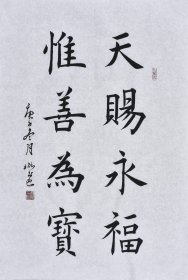 天賜永福
惟善為寶
庚子冬月